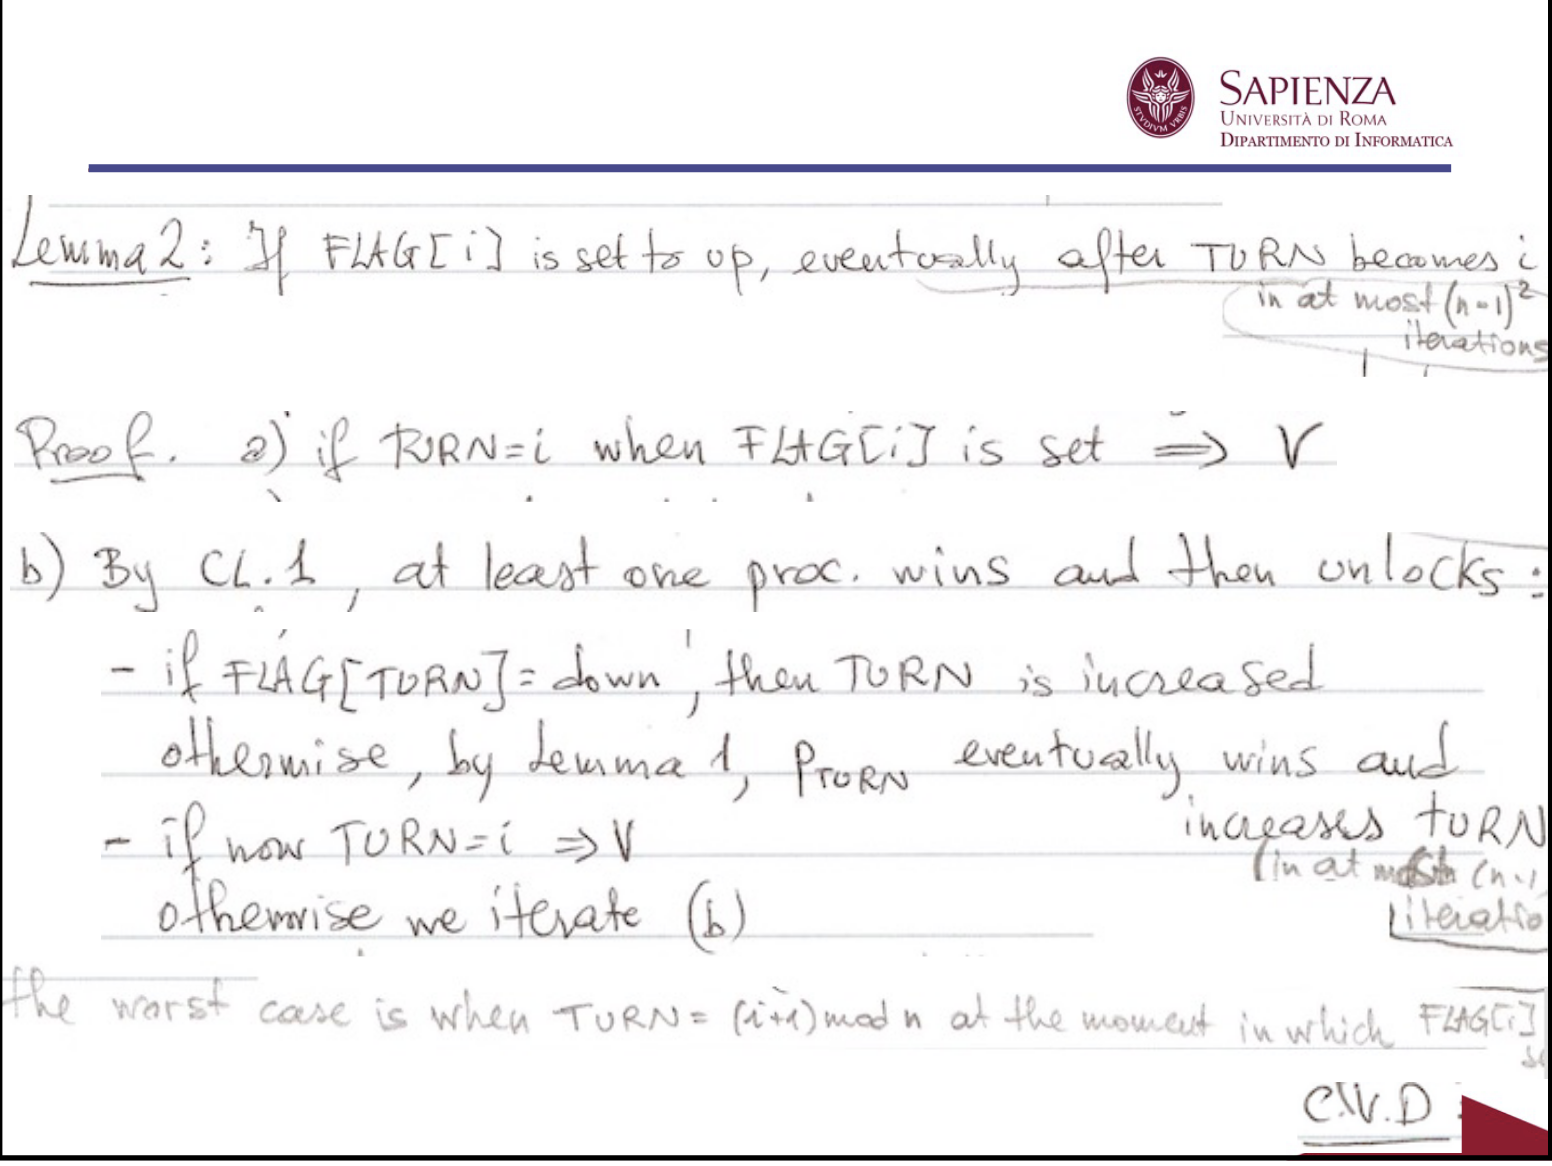 SAPIENZA
UNIVERSITÀ DI ROMA
DIPARTIMENTO DI INFORMATICA
STVDIVM VRBIS
Lemma 2: If FLAG[i] is set to up, eventually after TURN becomes i
in at most (n-1)²
iterations
Proof. a) if TURN=i when FLAG[i] is set ⇒ V
b) By CL.1, at least one proc. wins and then unlocks:
- if FLAG[TURN]=down, then TURN is increased
otherwise, by Lemma 1, PTURN eventually wins and
increases TURN
(in at most (n-1
iteratio
- if now TURN=i ⇒ V
otherwise we iterate (b)
the worst case is when TURN=(i+1)mod n at the moment in which FLAG[i]
C.V.D